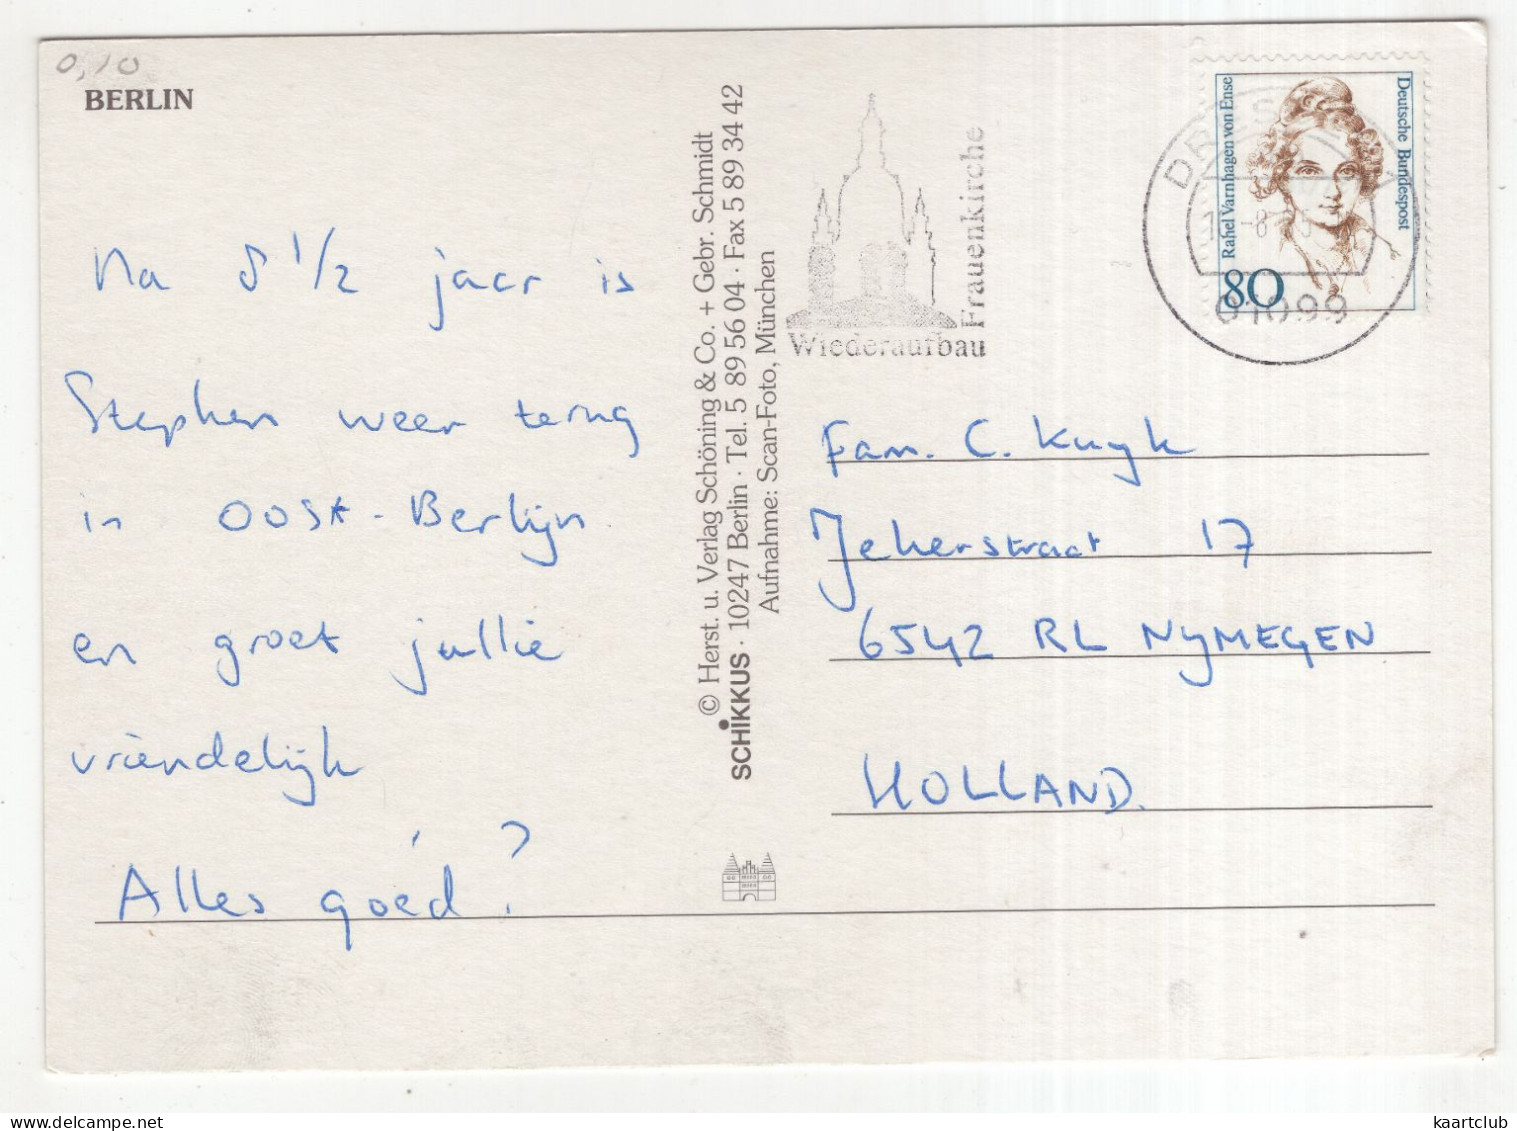 0,10
BERLIN
Na 8 1/2 jaar is
Stephen weer terug
in OOST-Berlijn
en groet jullie
vriendelijk
Alles goed?
© Herst. u. Verlag Schöning & Co. + Gebr. Schmidt
SCHIKKUS · 10247 Berlin · Tel. 5 89 56 04 · Fax 5 89 34 42
Aufnahme: Scan-Foto, München
Wiederaufbau
Frauenkirche
Rahel Varnhagen von Ense
Deutsche Bundespost
80
01099
Fam. C. Kuyk
Jekerstraat 17
6542 RL NYMEGEN
HOLLAND.
kaartclub